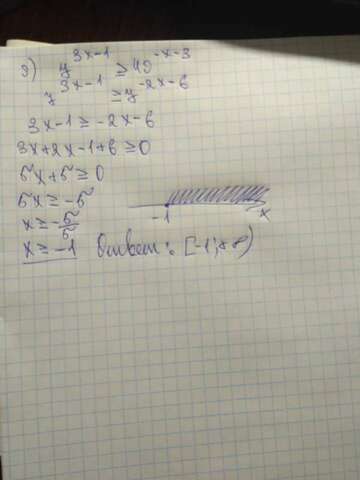 3) y^{3x-1} ≥ 49^{-x-3}
y^{3x-1} ≥ y^{-2x-6}
3x-1 ≥ -2x-6
3x+2x-1+6 ≥ 0
5x+5 ≥ 0
5x ≥ -5
x ≥ -5/5
-1 x
x ≥ -1 Ответ: [-1; +∞)